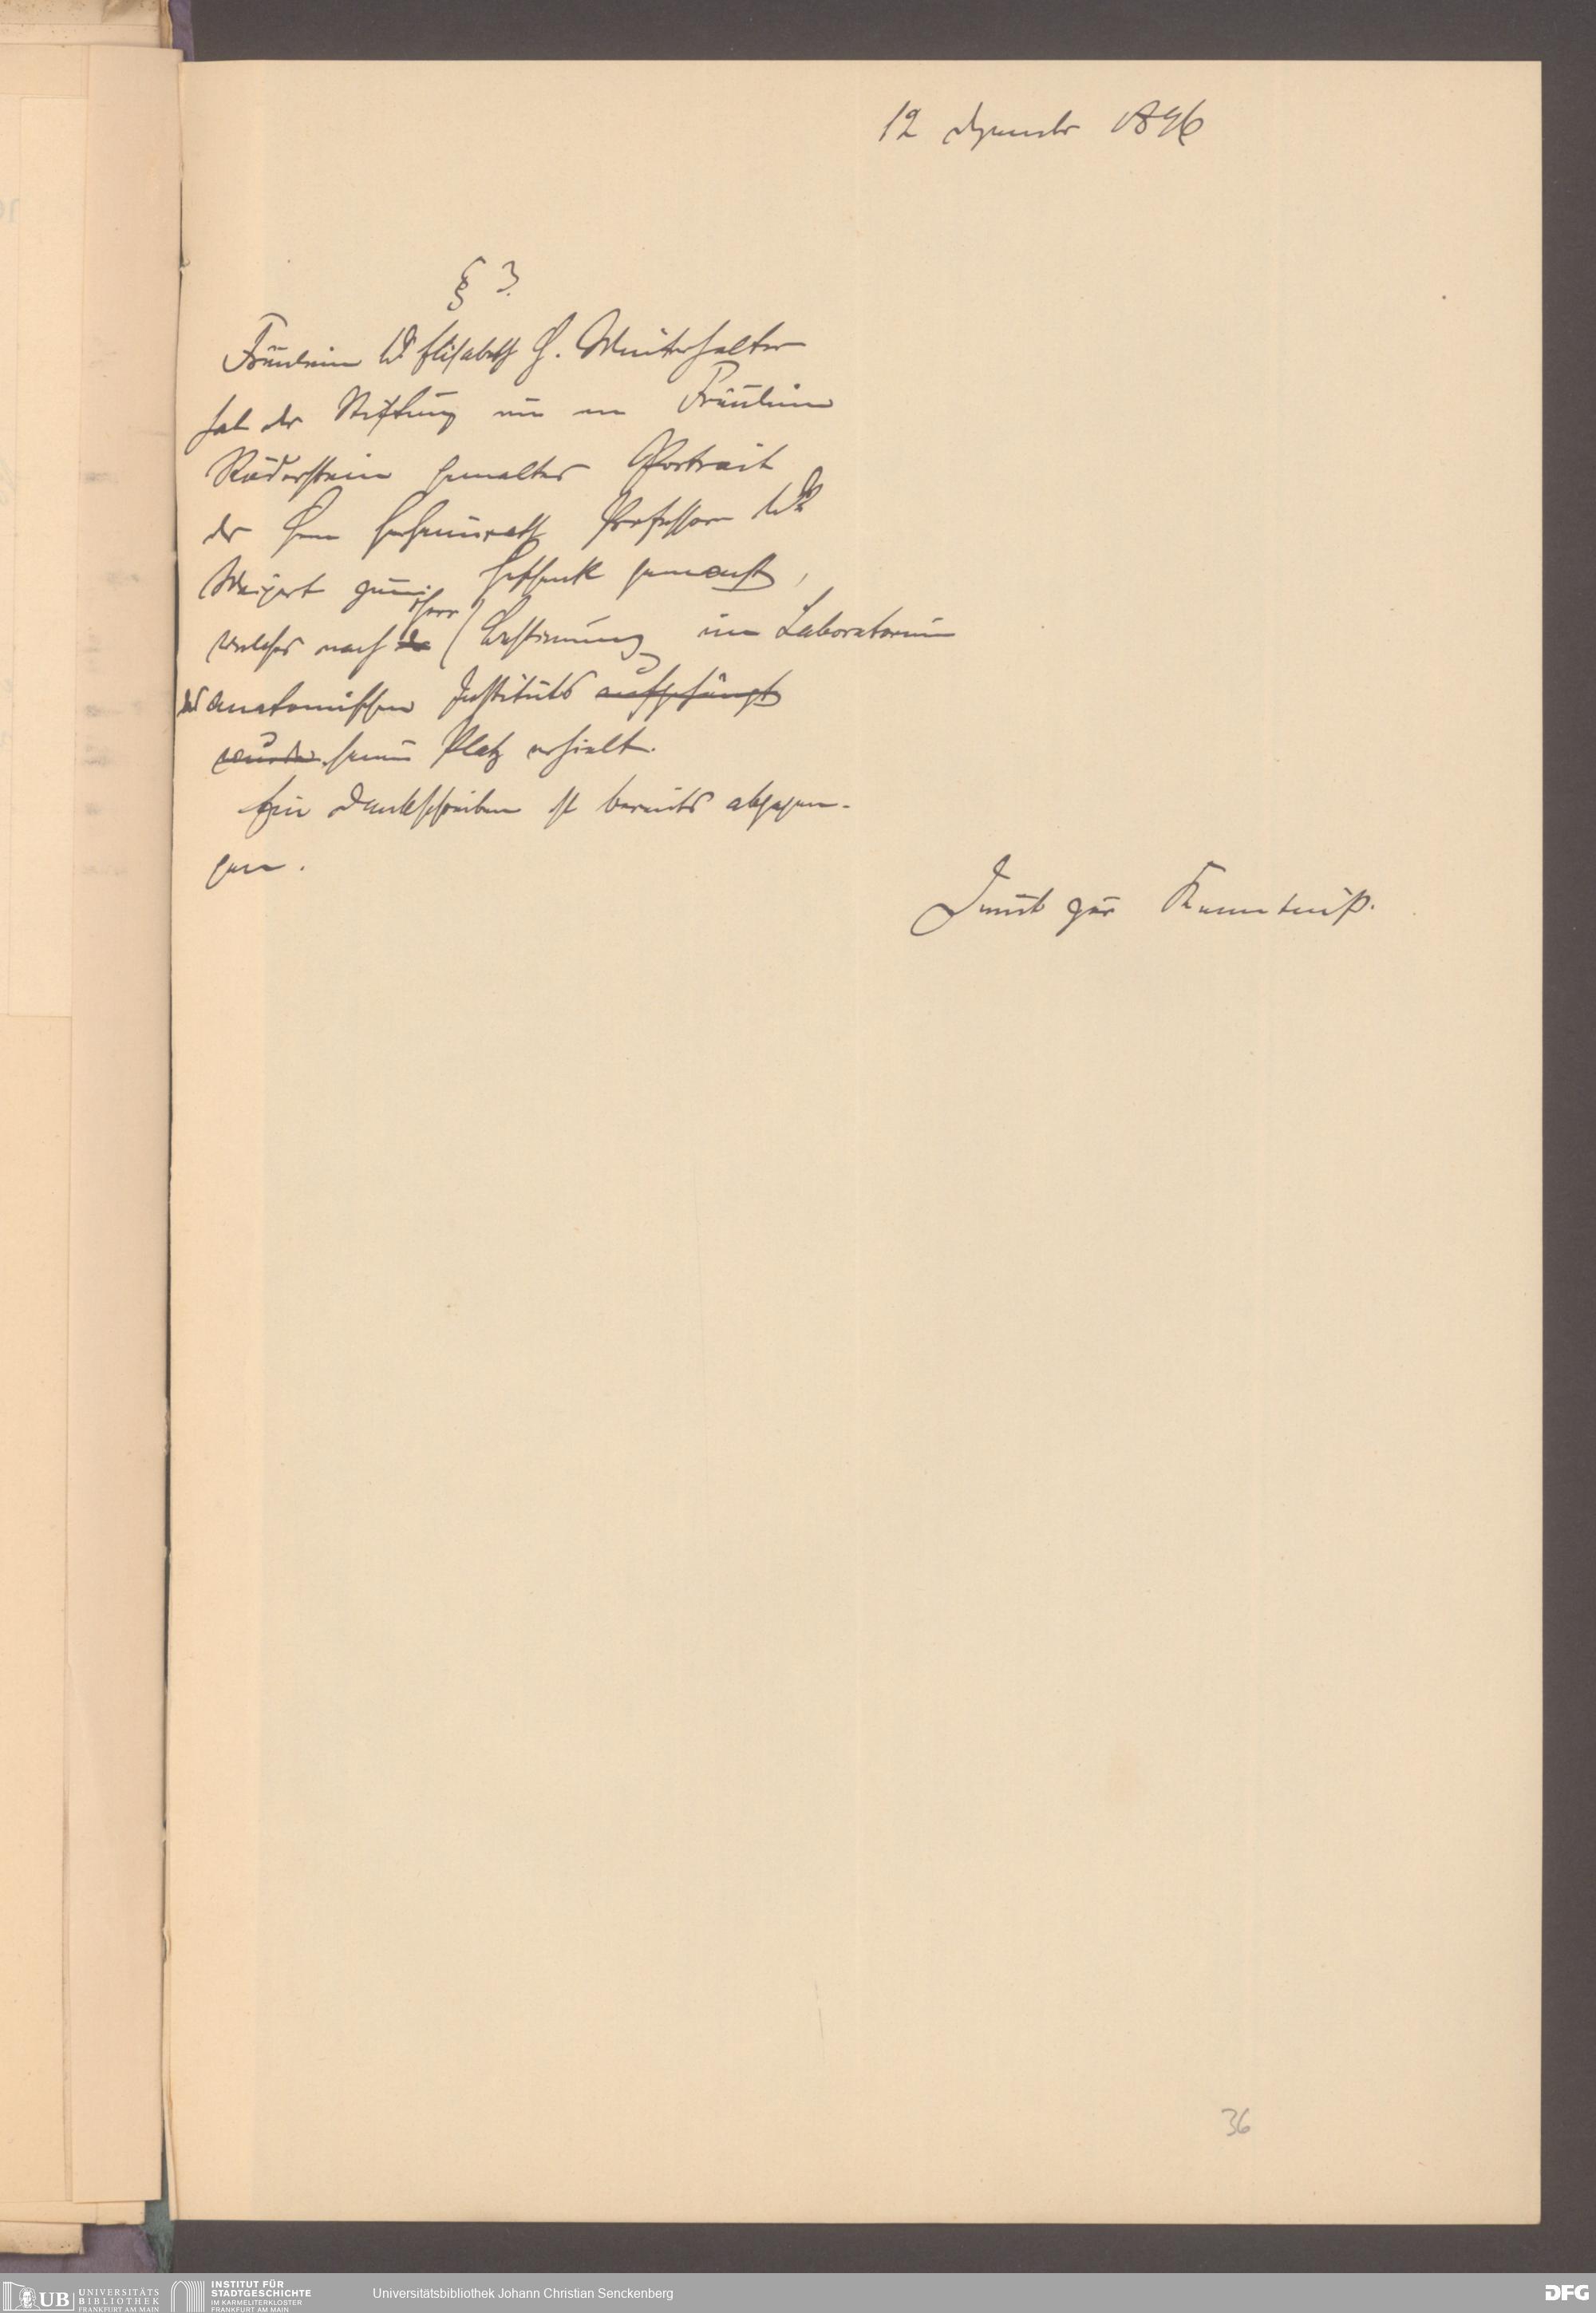 12 Dezember 1896
§ 3.
Fräulein Dr Elisabeth H. Winterhalter
hat der Stiftung ein von Fräulein
Röderstein gemaltes Portrait
des Herrn Geheimrath Professor Dr
Weigert zum Geschenk gemacht,
welches nach der ihrer Bestimmung im Laboratorium
des anatomischen Instituts aufgehängt
wurde seinen Platz erhielt.
Ein Dankschreiben ist bereits abgegan-
gen.
Dient zur Kenntniß.
36
UB UNIVERSITÄTS
BIBLIOTHEK
FRANKFURT AM MAIN
INSTITUT FÜR
STADTGESCHICHTE
IM KARMELITERKLOSTER
FRANKFURT AM MAIN
Universitätsbibliothek Johann Christian Senckenberg
DFG